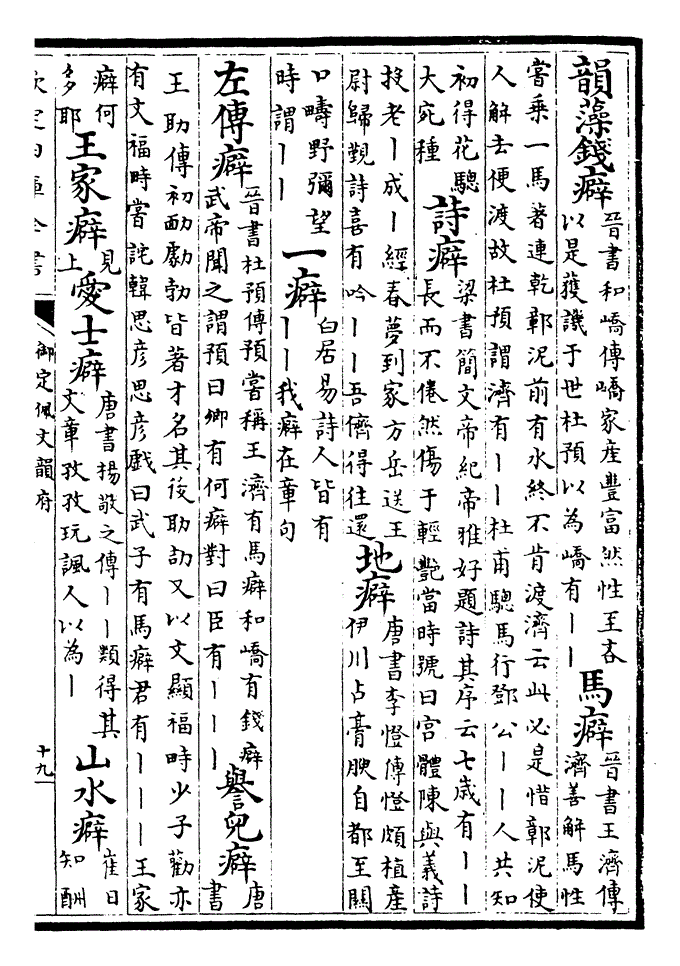 韻藻錢癖
晉書和嶠傳嶠家產豐富然性至吝
以是獲譏于世杜預以為嶠有丨丨
馬癖
晉書王濟傳
濟善解馬性
嘗乘一馬著連乾鄣泥前有水終不肯渡濟云此必是惜鄣泥使
人解去便渡故杜預謂濟有丨丨杜甫驄馬行鄧公丨丨人共知
初得花驄
大宛種
詩癖
梁書簡文帝紀帝雅好題詩其序云七歲有丨丨
長而不倦然傷于輕艷當時號曰宮體陳與義詩
投老丨成丨經春夢到家方岳送王
尉歸覲詩喜有吟丨丨吾儕得往還
地癖
唐書李憕傳憕頗植產
伊川占膏腴自都至關
口疇野彌望
時謂丨丨
一癖
白居易詩人皆有
丨丨我癖在章句
左傳癖
晉書杜預傳預嘗稱王濟有馬癖和嶠有錢癖
武帝聞之謂預曰卿有何癖對曰臣有丨丨丨
譽兒癖
唐
書
王助傳初勔勮勃皆著才名其後助劼又以文顯福時少子勸亦
有文福時嘗詫韓思彦思彦戲曰武子有馬癖君有丨丨丨王家
癖何
多耶
王家癖
見
上
愛士癖
唐書楊敬之傳丨丨類得其
文章孜孜玩諷人以為丨
山水癖
崔日
知酬
欽定四庫全書
御定佩文韻府
十九